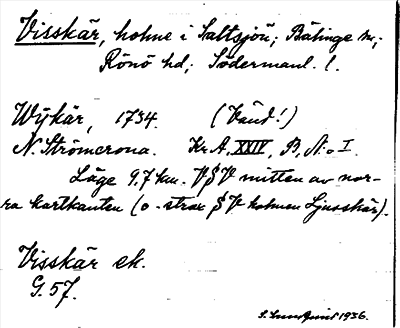 Visskär, holme i Saltsjön; Bälinge sn;
Rönö hd; Södermanl. l.
Wijkär, 1734. (Känd!)
N. Strömcrona. Kr. A. XXIV, B, N:o I.
Läge 9,7 km. V§V mitten av nor-
ra kartkanten (o. strax §V holmen Ljusskär).
Visskär ek.
G. 57.
1936.